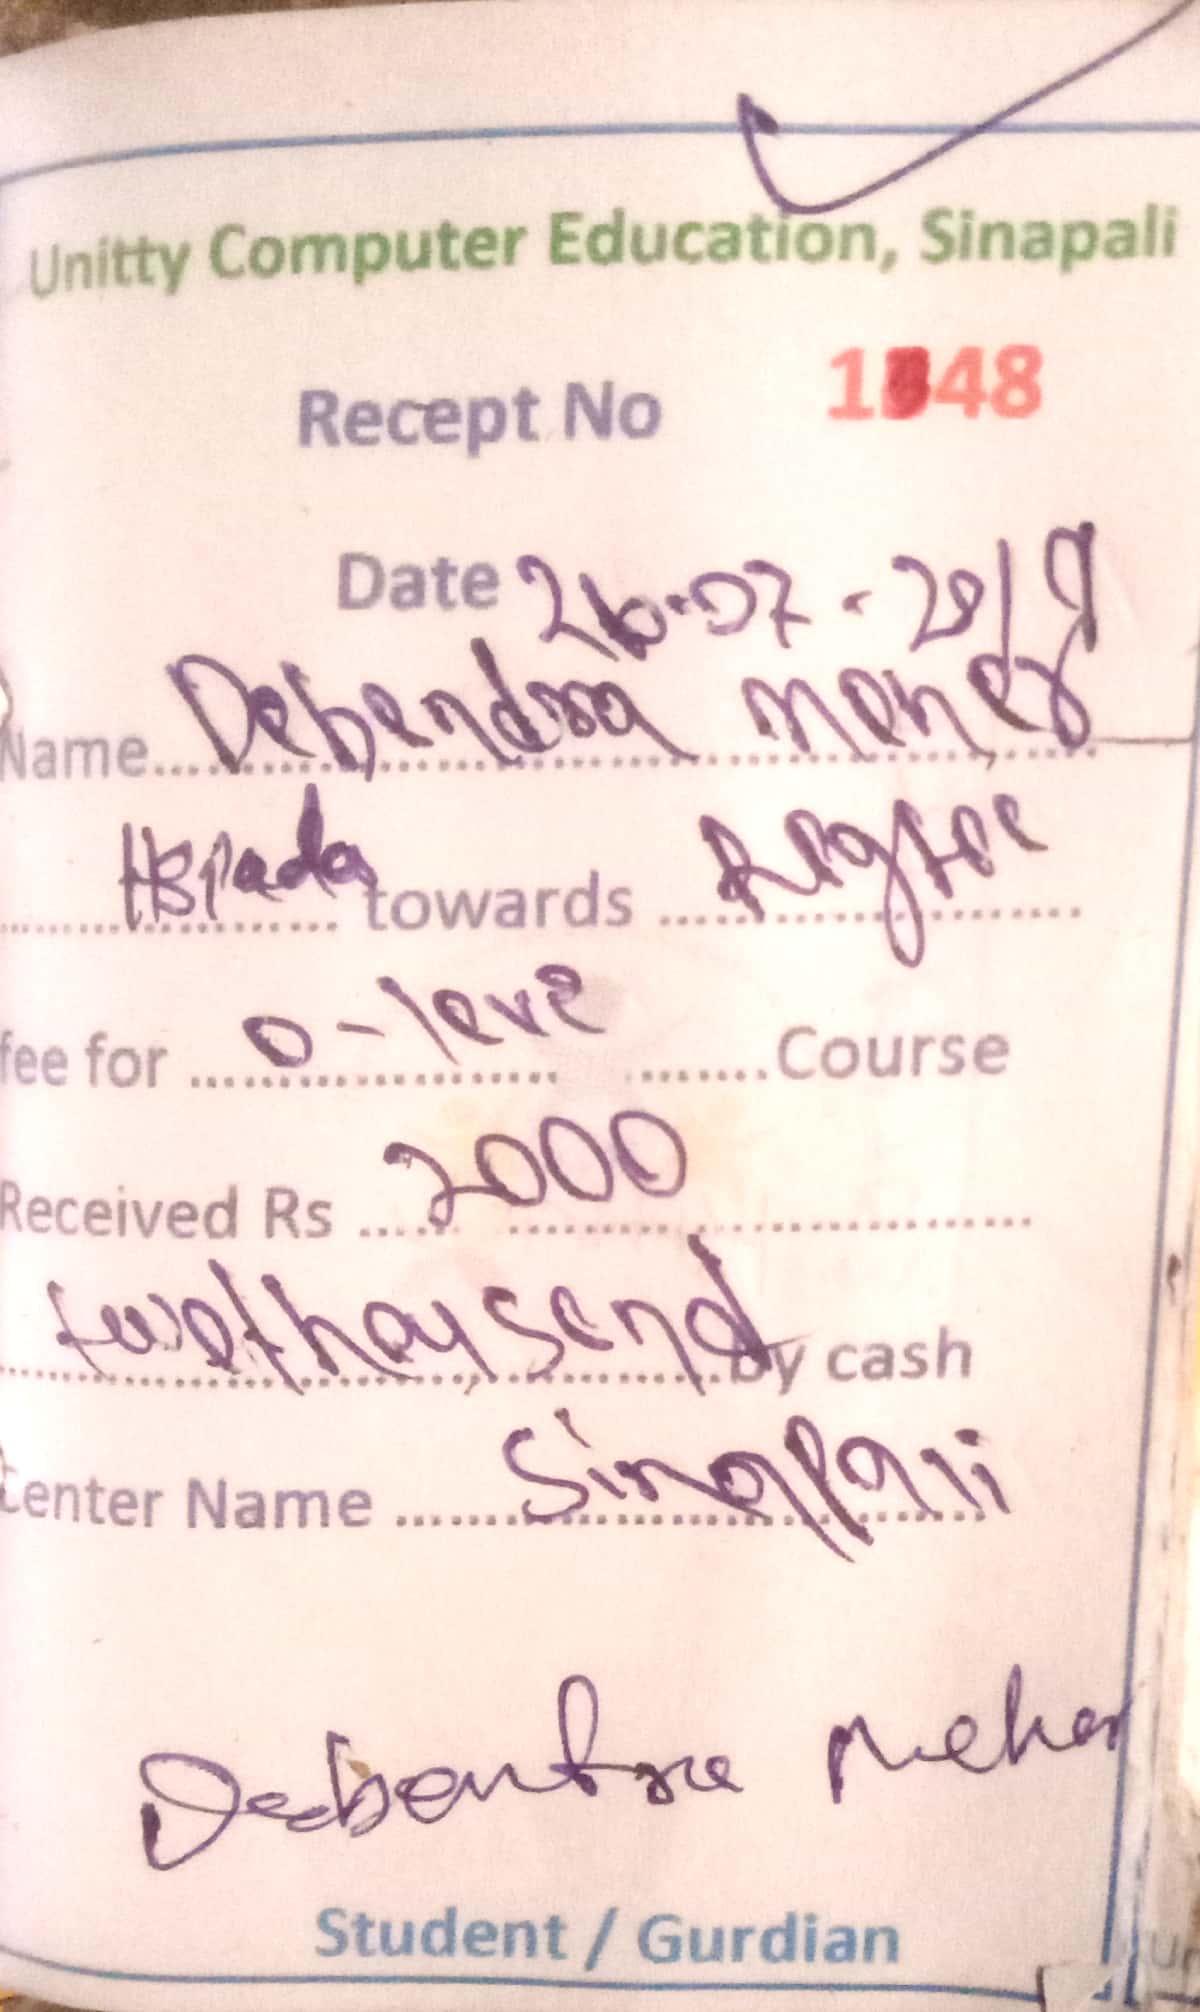 Unitty Computer Education, Sinapali
Recept No 1848
Date 26-07-2019
Name Debendra meher
HBpada towards Regfee
fee for O-leve Course
Received Rs 2000
twothousend by cash
Center Name Sinapali
Debendra Meher
Student / Gurdian